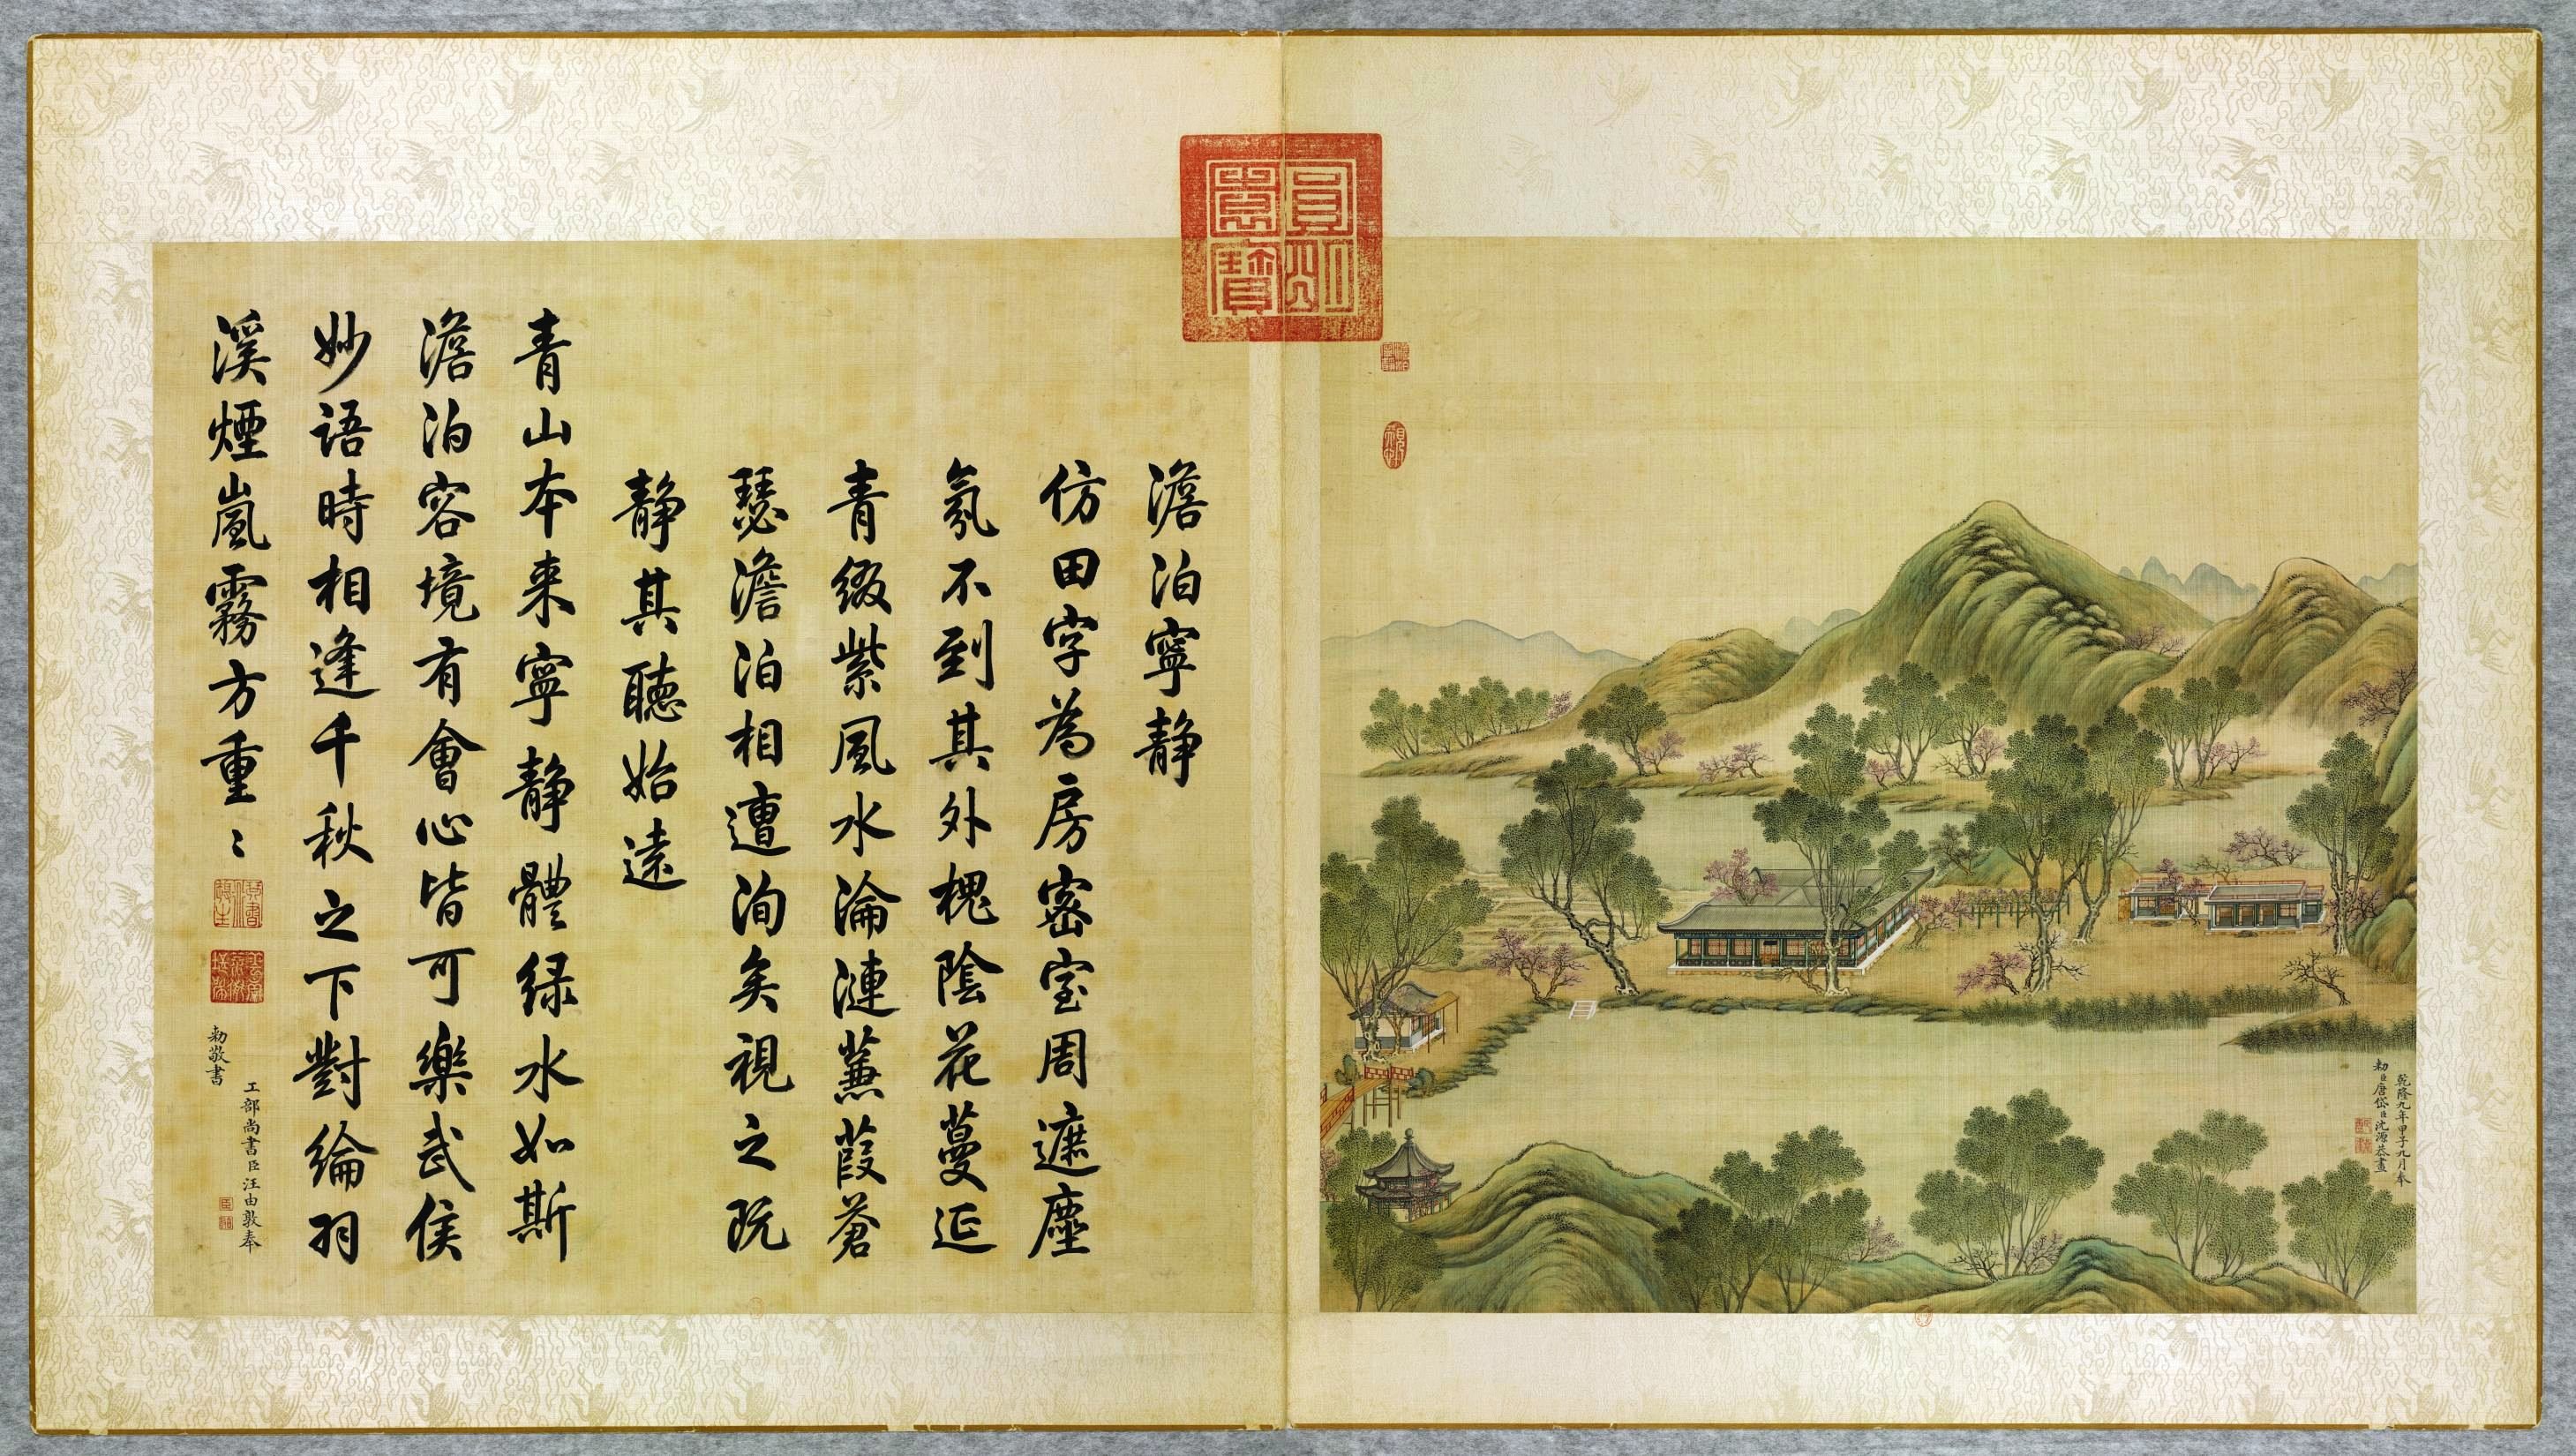 乾隆九年甲子九月奉
勅臣唐岱臣沈源恭畫
圓明
園寶
澹泊寧静
仿田字為房密室周遮塵
氛不到其外槐陰花蔓延
青綴紫風水淪漣蒹葭蒼
瑟澹泊相遭洵矣視之既
静其聽始遠
青山本来寧静體緑水如斯
澹泊容境有會心皆可樂武侯
妙語時相逢千秋之下對綸羽
溪煙嵐霧方重〻
工部尚書臣汪由敦奉
勅敬書